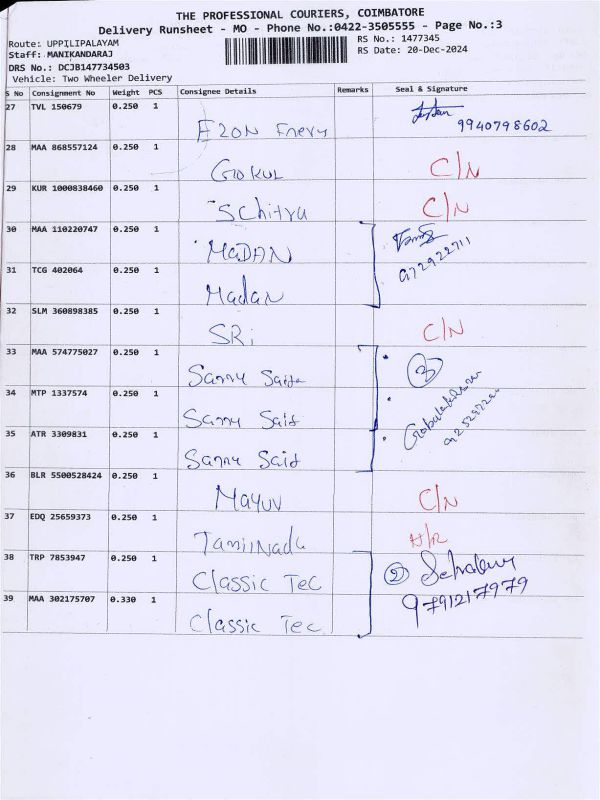 THE PROFESSIONAL COURIERS, COIMBATORE
Delivery Runsheet - MO - Phone No.:0422-3505555 - Page No.:3
Route: UPPILIPALAYAM
RS No.: 1477345
Staff: MANIKANDARAJ
RS Date: 20-Dec-2024
DRS No.: DCJB147734503
Vehicle: Two Wheeler Delivery
S No Consignment No Weight PCS Consignee Details Remarks Seal & Signature
27 TVL 150679 0.250 1 9940798602
28 MAA 868557124 0.250 1 Gokul C/N
29 KUR 1000838460 0.250 1 Schitra C/N
30 MAA 110220747 0.250 1 MADAN
31 TCG 402064 0.250 1 Madan
32 SLM 360898385 0.250 1 SRi C/N
33 MAA 574775027 0.250 1 3
34 MTP 1337574 0.250 1
35 ATR 3309831 0.250 1
36 BLR 5500528424 0.250 1 Mayuv C/N
37 EDQ 25659373 0.250 1 Tamilnadu
38 TRP 7853947 0.250 1 Classic Tec 2
39 MAA 302175707 0.330 1 Classic Tec 9791217979